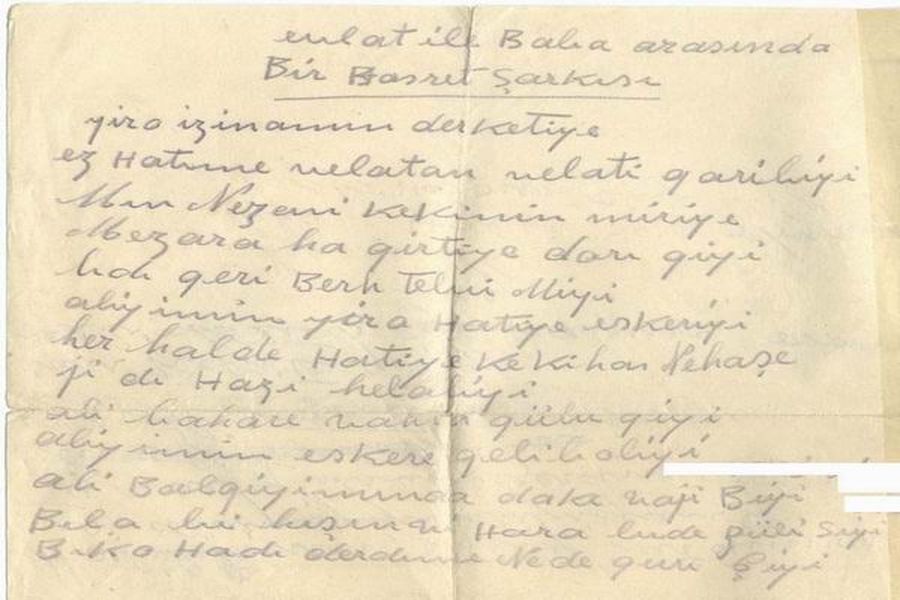 eulat ile Baba arasında
Bir Hasret Şarkısı
yiro izinamın derketiye
ez Hatıme velatan velati qaribiyi
Mın Nezani kekimin miriye
Mezara ha girtiye darı qiyi
geri Berh Miyi
aliyimin yiro Hatiye eskeriyi
her halde Hatiye kekihan Nehaşe
ji di Hazi helaliyi
ali bahare gülu qiyi
aliyimin eskere geliboliyi
ali daka naji Biyi
Bıla Hara lude güli Siyi
B.Ko Hadı derdıme Ne de guri Çiyi